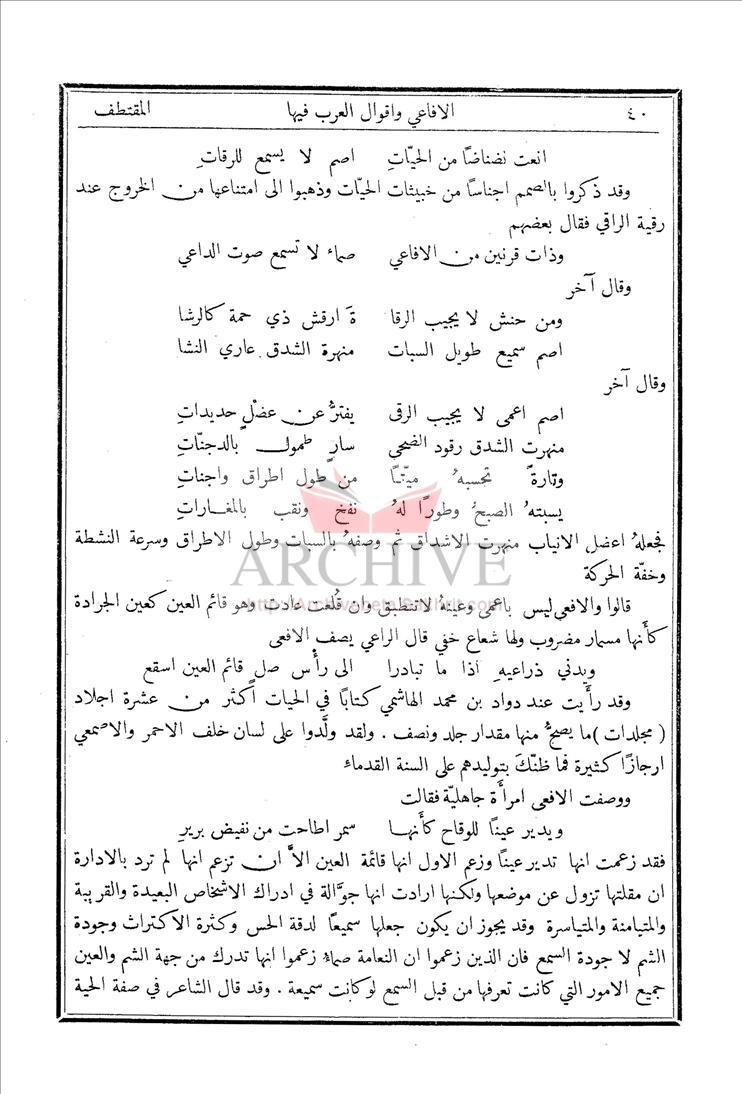 ٤٠ الافاعي واقوال العرب فيها المقتطف
انعت نضناضًا من الحيّاتِ اصم لا يسمع للرقاتِ
وقد ذكروا بالصمم اجناسًا من خبيثات الحيّات وذهبوا الى امتناعها من الخروج عند
رقية الراقي فقال بعضهم
وذات قرنين من الافاعي صماء لا تسمع صوت الداعي
وقال آخر
ومن حنش لا يجيب الرقا ةَ ارقش ذي حمة كالرشا
اصم سميع طويل السبات منهرة الشدق عاري النشا
وقال آخر
اصم اعمى لا يجيب الرقى يفترُّ عن عضلٍ حديداتِ
منهرت الشدق رقود الضحي سارٍ طمول بالدجنّاتِ
وتارةً تحسبهُ ميّتًا من طول اطراق واجناتِ
يسبتهُ الصبحُ وطورًا لهُ نفخ ونقب بالمغاراتِ
فجعلهُ اعضل الانياب منهرت الاشداق ثم وصفهُ بالسبات وطول الاطراق وسرعة النشطة
وخفّة الحركة
ARCHIVE
قالوا والافعى ليس باعمى وعينهُ لا تنطبق وان قُلعت عادت وهو قائم العين كعين الجرادة
كأَنها مسمار مضروب ولها شعاع خفي قال الراعي يصف الافعى
ويدني ذراعيهِ اذا ما تبادرا الى رأْس صل قائم العين اسقع
وقد رأَيت عند دواد بن محمد الهاشمي كتابًا في الحيات اكثر من عشرة اجلاد
( مجلدات ) ما يصحُّ منها مقدار جلد ونصف . ولقد ولَّدوا على لسان خلف الاحمر والاصمعي
ارجازًا كثيرة فما ظنّكَ بتوليدهم على السنة القدماء
ووصفت الافعى امرأَة جاهليّة فقالت
ويدير عينًا للوقاح كأَنها سمر اطاحت من نفيض بريرِ
فقد زعمت انها تدير عينًا وزعم الاول انها قائمة العين الاَّ ان تزعم انها لم ترد بالادارة
ان مقلتها تزول عن موضعها ولكنها ارادت انها جوَّالة في ادراك الاشخاص البعيدة والقريبة
والمتيامنة والمتياسرة وقد يجوز ان يكون جعلها سميعًا لدقة الحس وكثرة الاكتراث وجودة
الشم لا جودة السمع فان الذين زعموا ان النعامة صماء زعموا انها تدرك من جهة الشم والعين
جميع الامور التي كانت تعرفها من قبل السمع لو كانت سميعة . وقد قال الشاعر في صفة الحية